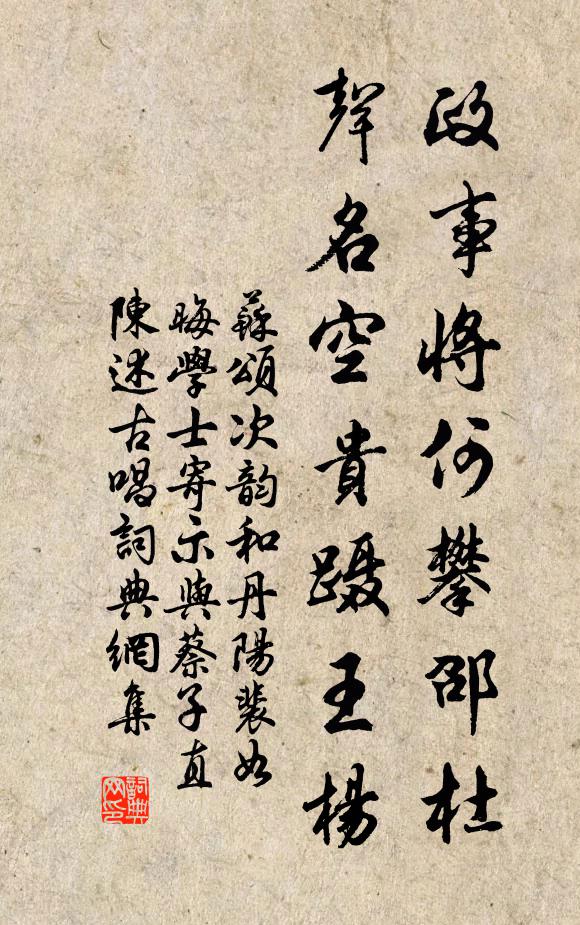 政事將何攀邵杜
聲名空貴躡王楊
蘇頌次韵和丹陽裴如
晦學士寄示與蔡子直
陳述古唱詞典網集
詞典網印